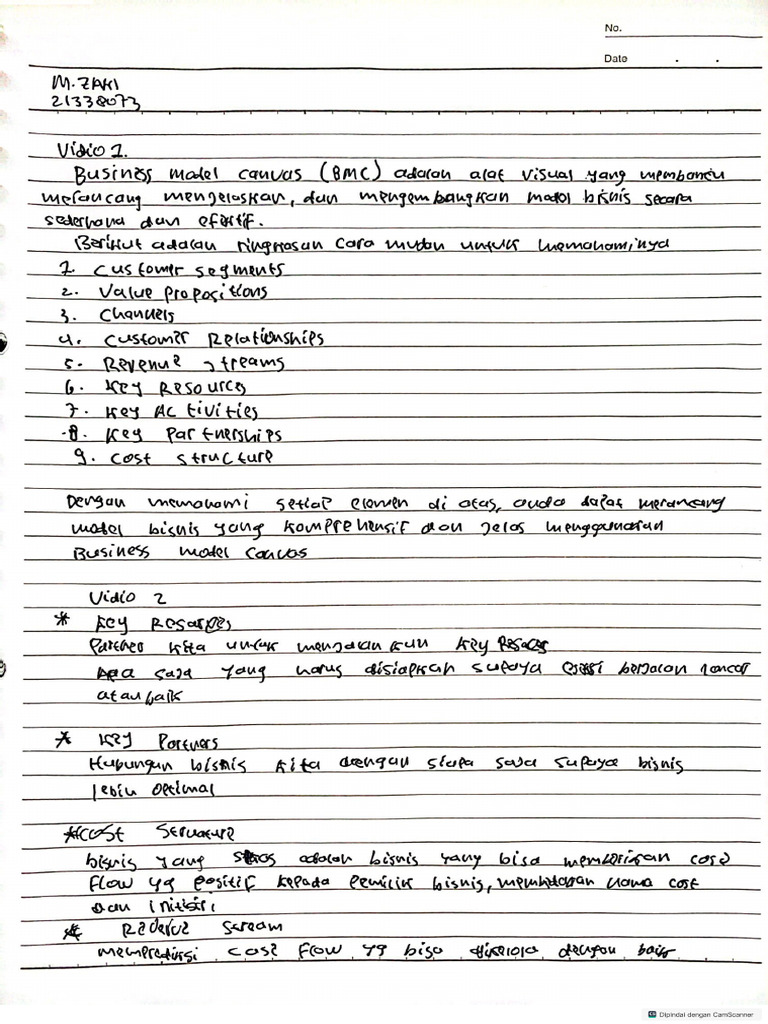 No.
Date
M. ZAKI
21338073
Vidio 1.
Business model canvas (BMC) adalah alat visual yang membantu
merancang mengelaskan, dan mengembangkan model bisnis secara
sederhana dan efektif.
Berikut adalah ringkasan cara mudah untuk memahaminya
1. Customer segments
2. Value propositions
3. Channels
4. Customer Relationships
5. Revenue streams
6. Key Resources
7. Key Activities
8. Key Partnerships
9. Cost structure
Dengan memahami setiap elemen di atas, anda dapat merancang
model bisnis yang komprehensif dan jelas menggunakan
Business model Canvas
Vidio 2
* Key
kita untuk menjalankan Key
Apa saja yang harus disiapkan supaya berjalan lancar
atau baik
* Key Partners
Hubungan bisnis kita dengan siapa saja supaya bisnis
lebih optimal
* Cost
bisnis yang adalah bisnis yang bisa memberikan
flow yg positif kepada pemilik bisnis, nama cost
dan
*
memprediksi flow yg bisa dikelola dengan baik
Dipindai dengan CamScanner